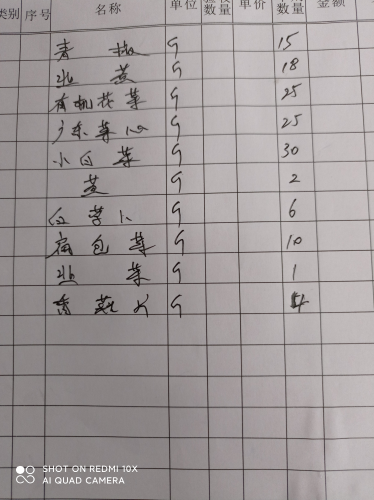 类别 序号 名称 单位 数量 单价 数量 金额
青椒 斤 15
韭黄 斤 18
有机花菜 斤 25
广东菜心 斤 25
小白菜 斤 30
斤 2
白萝卜 斤 6
扁包菜 斤 10
韭菜 斤 1
斤 4
SHOT ON REDMI 10X
AI QUAD CAMERA